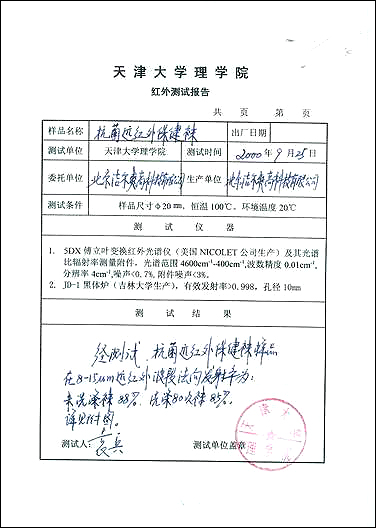 天津大学理学院
红外测试报告
共 页 第 页
样品名称 抗菌远红外保健袜 出厂日期
测试单位 天津大学理学院 测试时间 2000年9月25日
委托单位 北京洁尔爽高科技有限公司 生产单位 北京洁尔爽高科技有限公司
测试条件 样品尺寸Φ20mm, 恒温100℃, 环境温度20℃
测 试 仪 器
1. 5DX傅立叶变换红外光谱仪(美国NICOLET公司生产)及其光谱
比辐射率测量附件, 光谱范围4600cm⁻¹-400cm⁻¹,波数精度0.01cm⁻¹,
分辨率4cm⁻¹,噪声<0.7%, 附件噪声<3%.
2. JD-1黑体炉(吉林大学生产), 有效发射率>0.998, 孔径10mm
测 试 结 果
经测试, 抗菌远红外保健袜样品
在8-15μm远红外波段法向发射率为:
未洗涤袜88%, 洗涤80次袜85%.
详见附图.
测试人:
测试单位盖章